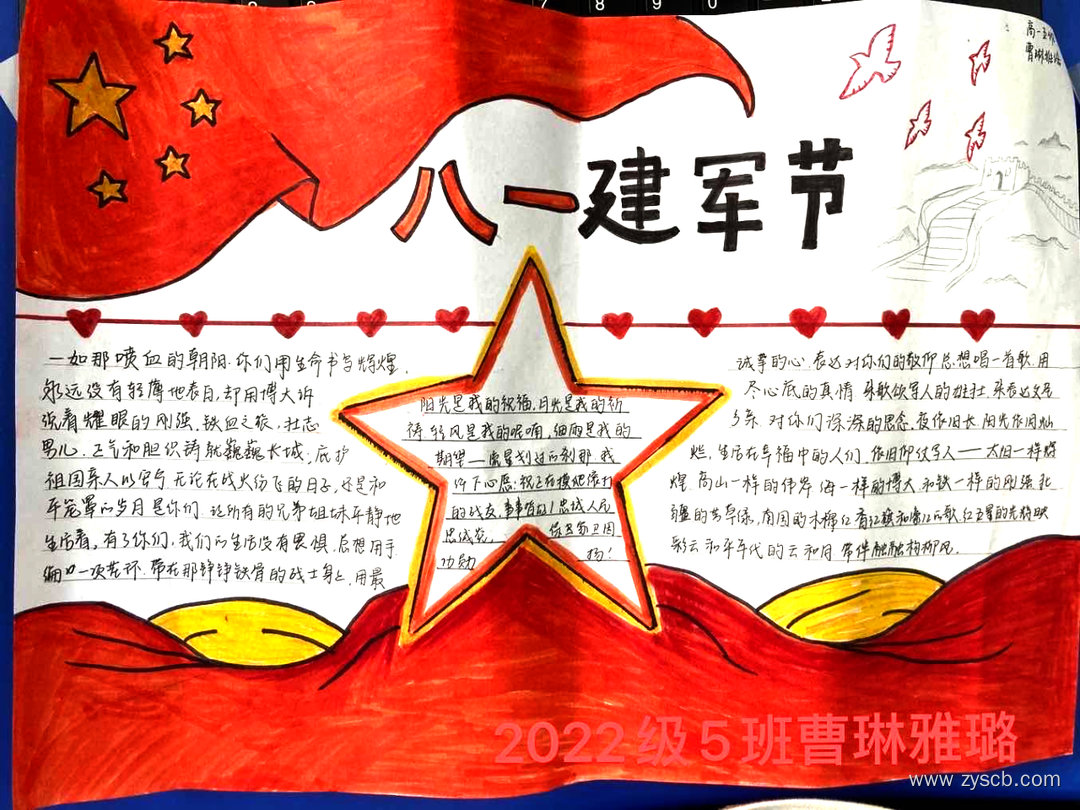 高一五班
八一建军节
一如那喷血的朝阳.你们用生命书写辉煌,
永远没有轻薄地表白,却用博大诉
强着耀眼的刚强.铁血之旅,壮志
男儿.正气和胆识铸就巍巍长城,庇护
祖国亲人的安宁.无论在战火纷飞的日子,还是和
平笼罩的岁月是你们.让所有的兄弟姐妹平静地
生活着,有了你们,我们的生活没有畏惧.总想用手
编织一顶花环.带在那铮铮铁骨的战士身上,用最
阳光是我的祝福,月光是我的祈
祷轻风是我的呢喃,细雨是我的
期望—流星划过的刹那.我
许下心愿:祝正在摸爬滚打
的战友,事事
忠诚人民
保卫
功勋
扬!
诚挚的心.表达对你们的敬仰总想唱一首歌.用
尽心底的真情 来歌颂军人的雄壮.来表达父老
乡亲.对你们深深的思念.夜依旧长.阳光依旧灿
烂,生活在幸福中的人们.依旧仰仗军人——太阳一样辉
煌.高山一样的伟岸 海一样的博大 和铁一样的刚强北
疆的劳导绿,南国的木棉红
彩云和年年代的云和月
2022级5班曹琳雅璐
www.zyscb.com